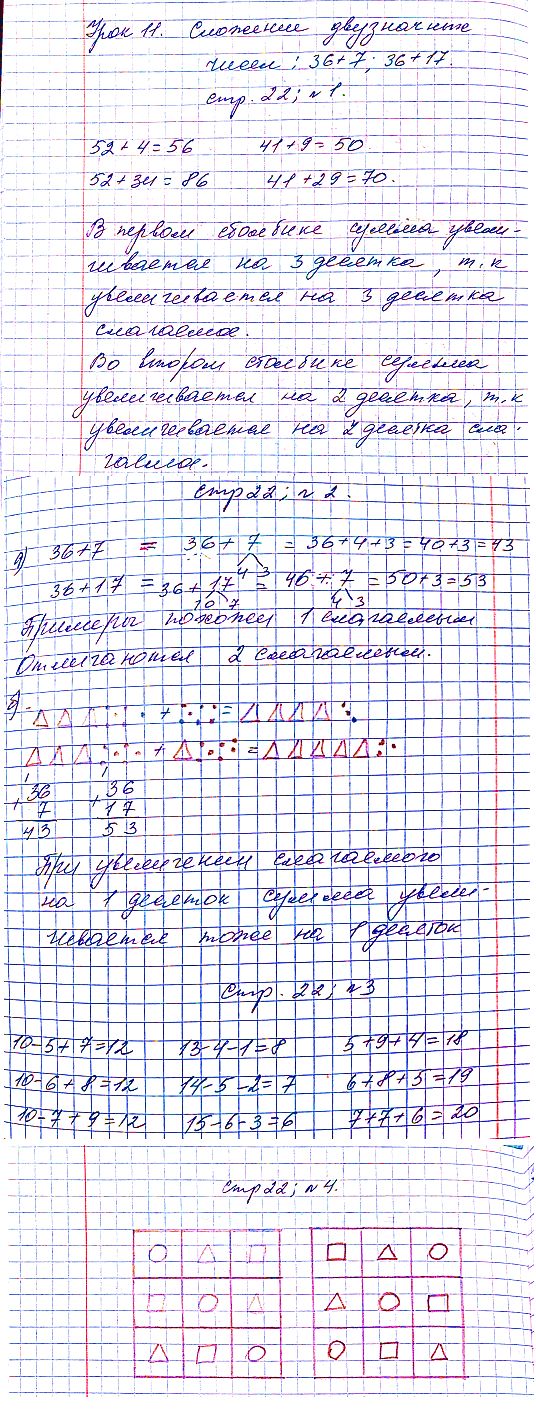 Урок 11. Сложение двузначных
чисел: 36+7; 36+17.
стр. 22; №1.
52+4=56 41+9=50
52+34=86 41+29=70.
В первом столбике сумма увели-
чивается на 3 десятка, т.к
увеличивается на 3 десятка
слагаемое.
Во втором столбике сумма
увеличивается на 2 десятка, т.к
увеличивается на 2 десятка сла-
гаемое.
стр 22; №2.
а) 36+7 = 36+7 = 36+4+3=40+3=43
4 3
36+17 = 36+17 = 46+7 = 50+3=53
10 7 4 3
Примеры похожи 1 слагаемым
Отличаются 2 слагаемым.
б)
+ =
+ =
1 1
+36 +36
7 17
43 53
При увеличении слагаемого
на 1 десяток сумма увели-
чивается тоже на 1 десяток
Стр. 22; №3
10-5+7=12 13-4-1=8 5+9+4=18
10-6+8=12 14-5-2=7 6+8+5=19
10-7+9=12 15-6-3=6 7+7+6=20
Стр 22; №4.